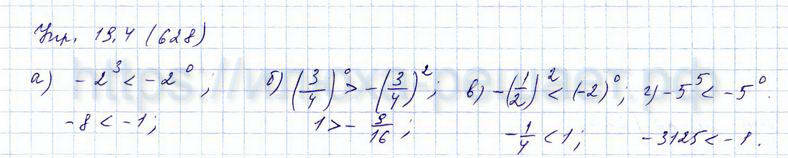 Упр. 19.4 (628)
а) -2³ < -2⁰ ; б) (3/4)⁰ > -(3/4)² ; в) -(1/2)² < (-2)⁰ ; г) -5⁵ < -5⁰.
-8 < -1 ; 1 > -9/16 ; -1/4 < 1 ; -3125 < -1.